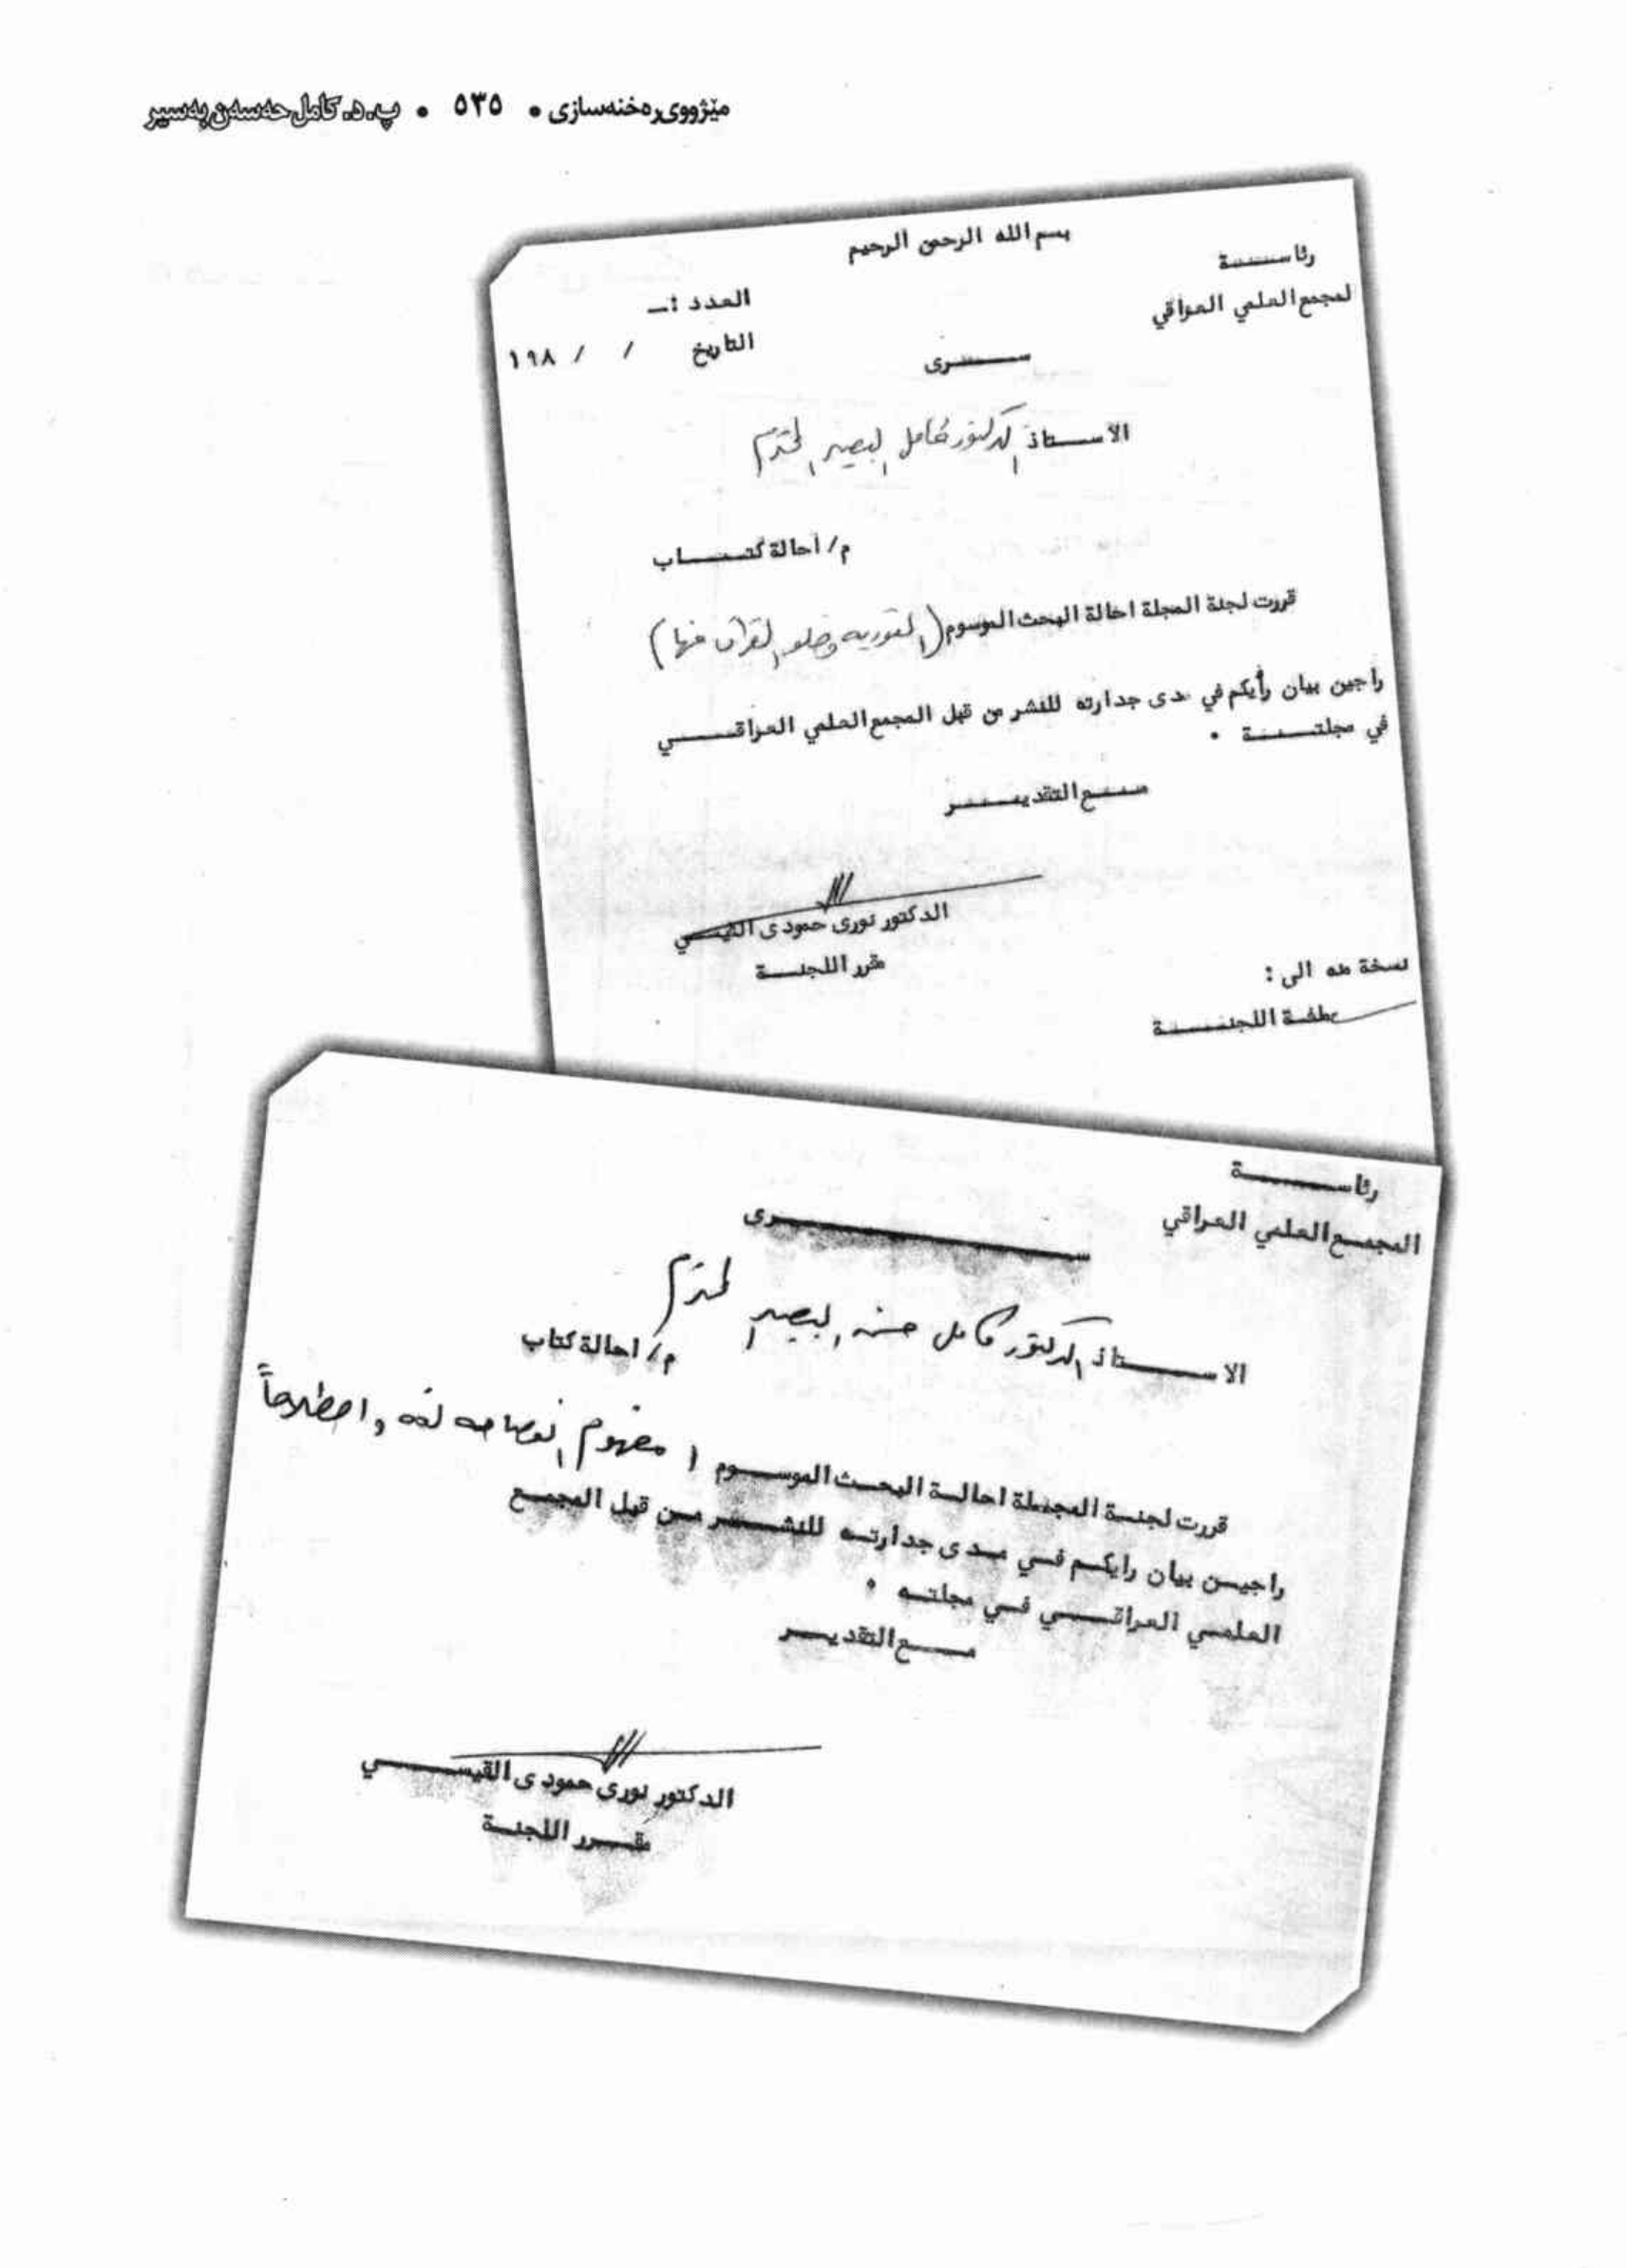 مێژووی ڕەخنەسازی • ٥٣٥ • پ.د. کامل حەسەن بەسیر
بسم الله الرحمن الرحيم
رئاســـــة
لمجمع العلمي العراقي
العدد :ــ
التاريخ / / ١٩٨
ســـــرى
الاســـتاذ الدكتور كامل البصير المحترم
م/ احالة كتـــــاب
قررت لجنة المجلة احالة البحث الموسوم (التورية وخلو القرآن منها)
راجين بيان رأيكم في مدى جدارته للنشر من قبل المجمع العلمي العراقـــــي
في مجلتـــــة .
مـــع التقديـــــر
الدكتور نورى حمودى القيســـي
مقرر اللجنـــة
نسخة منه الى :
اللجنـــــة
رئاســـــة
المجمـــع العلمي العراقي
ســـــــــرى
الاســـــتاذ الدكتور كامل حسن البصير المحترم
م/ احالة كتاب
قررت لجنـة المجـلة احالـة البحـث الموسـوم ( مفهوم الفصاحه لغه واصطلاحاً
راجيـن بيان رايكـم فـي مـدى جدارتـه للنشـــر مـن قبل المجمـع
العلمـي العراقـــي فـي مجلتـه .
مــــع التقديـــر
الدكتور نورى حمودى القيســـــي
مقـــرر اللجنـــة